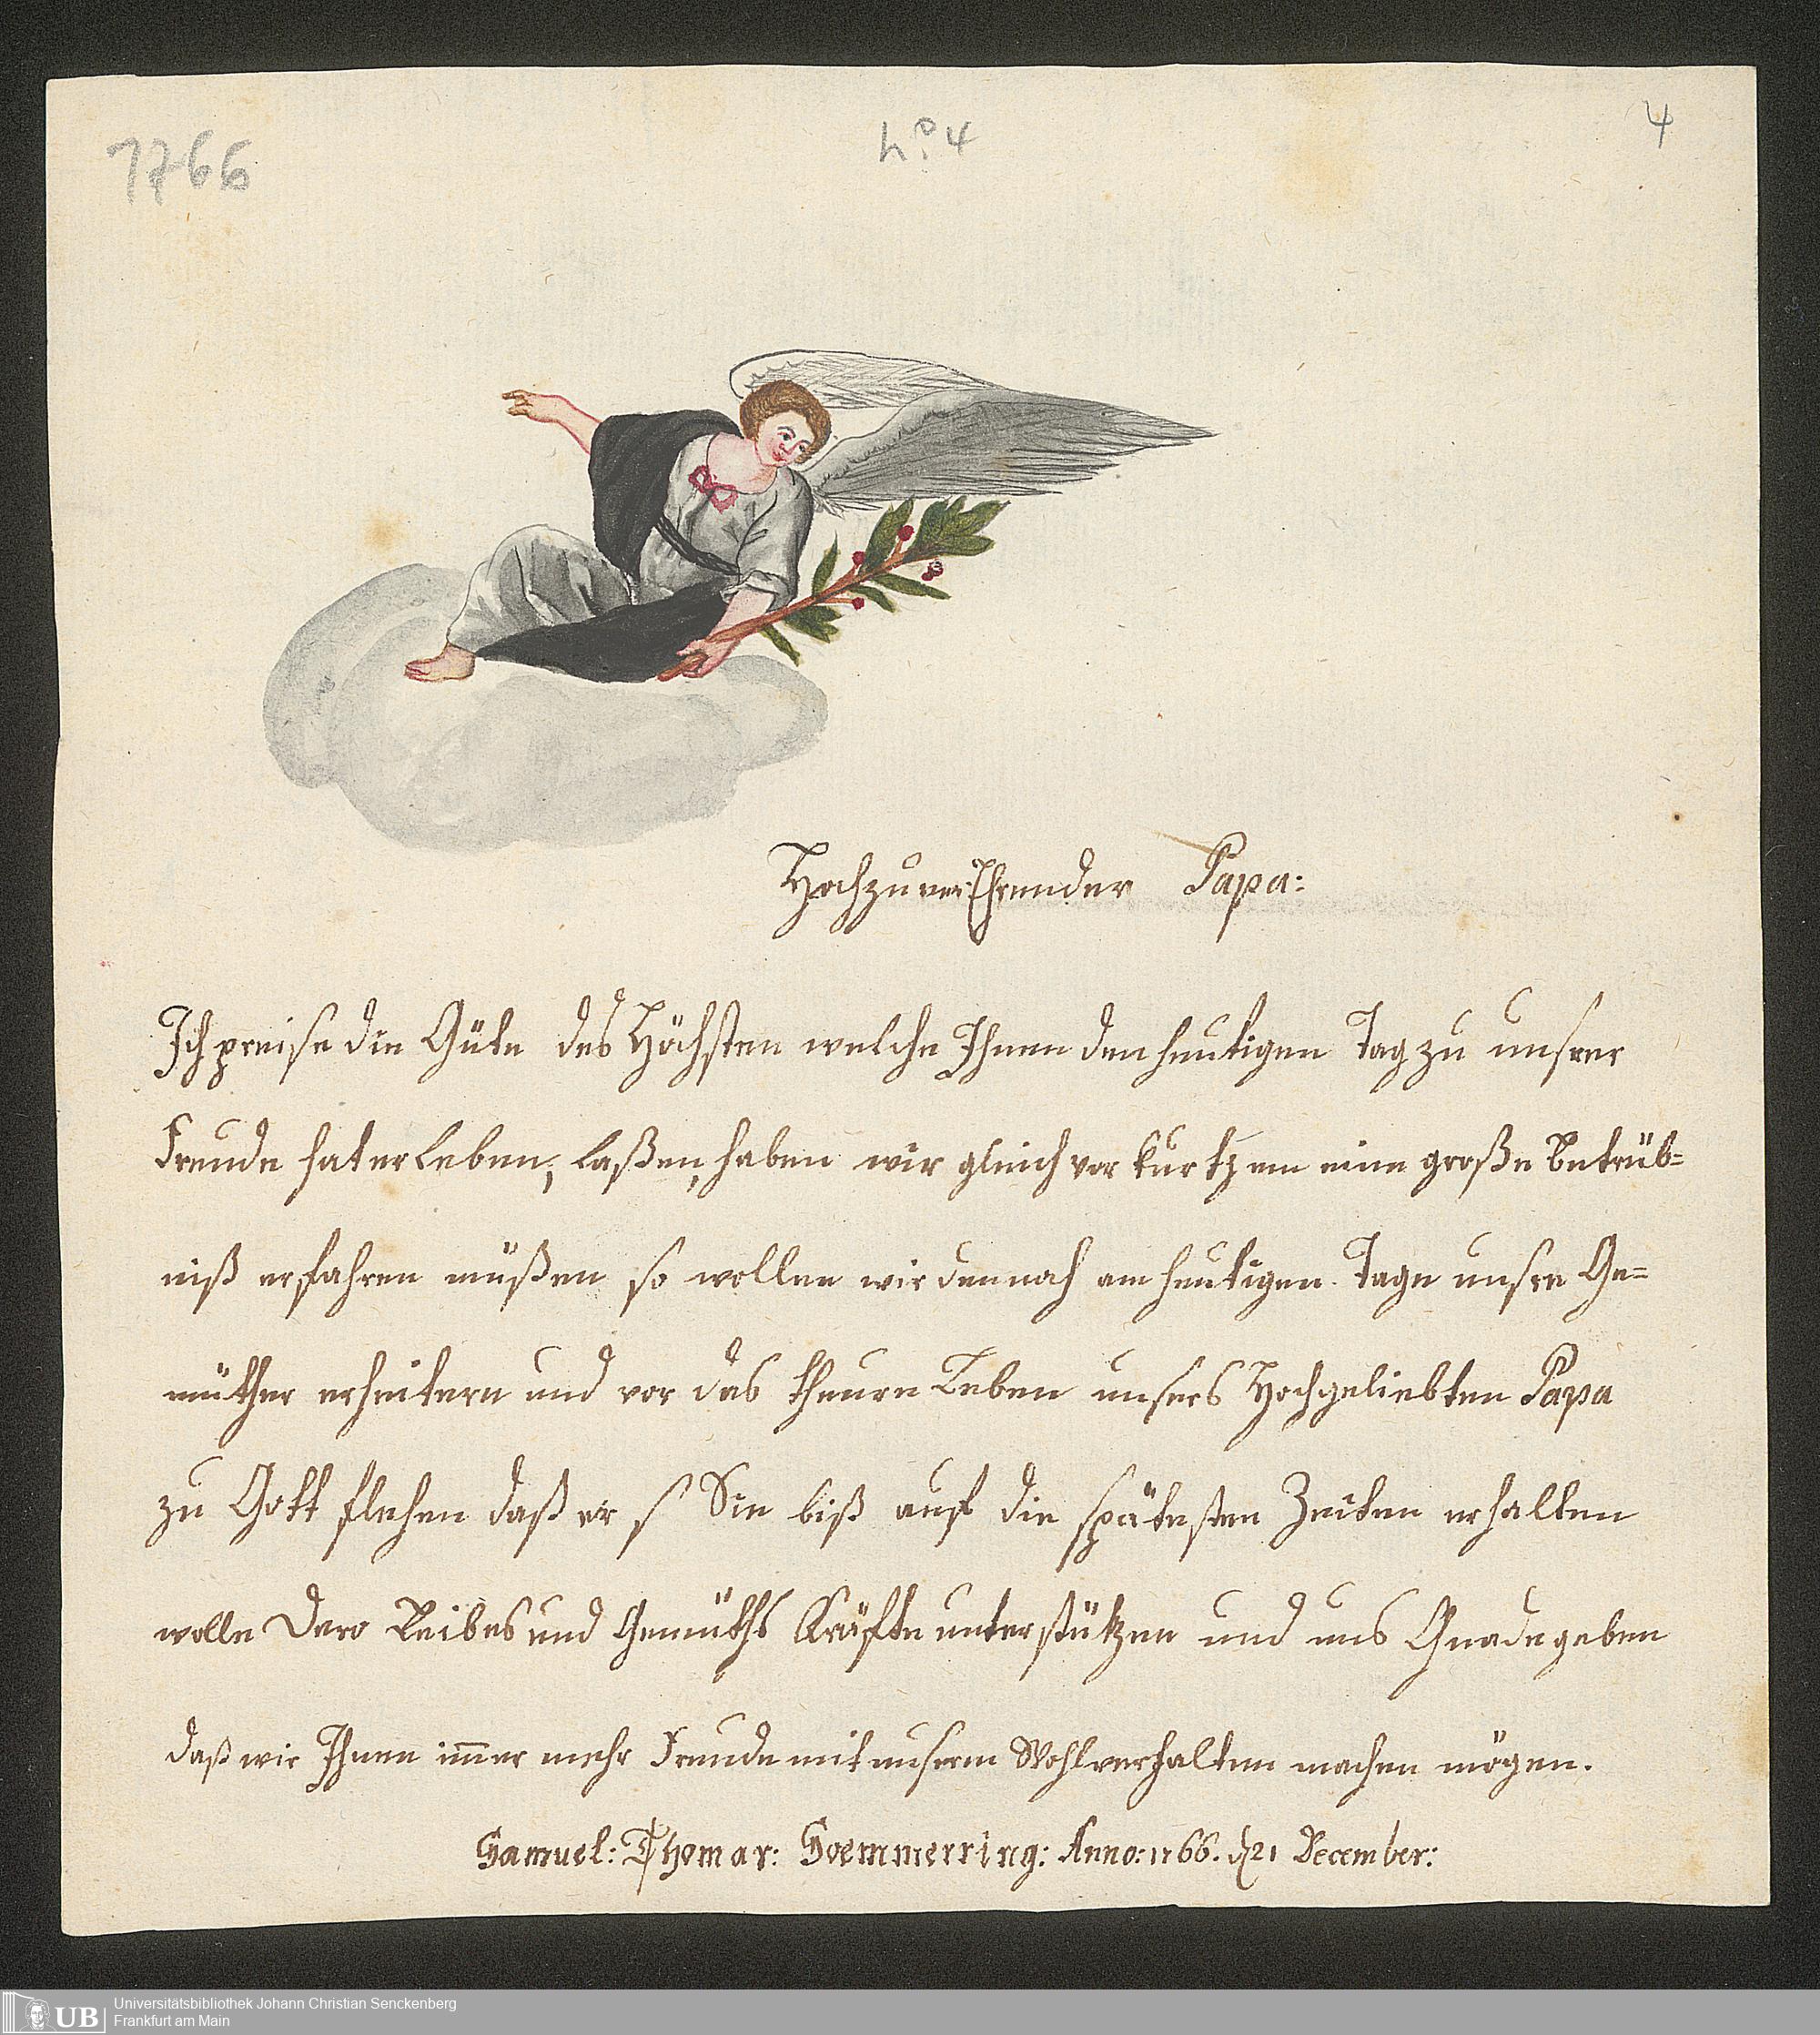 1766
No 4
4
Hochzuver Ehrender Papa:
Ich preise die Güte des Höchsten welche Ihnen den heutigen Tag zu unsrer
Freude hat erleben, laßen, haben wir gleich vor kurtzem eine große Betrüb=
niß erfahren müßen so wollen wir dennoch am heutigen Tage unsre Ge=
müther erheitern und vor das theure Leben unsers Hochgeliebten Papa
zu Gott flehen daß er s Sie biß auf die spätesten Zeiten erhalten
wolle Dero Leibes und Gemüths Kräfte unterstützen und uns Gnade geben
daß wir Ihnen im̅er mehr Freude mit unserm Wohlverhalten machen mögen.
Samuel: Thomas: Soemmerring: Anno: 1766. d 21 December:
UB
Universitätsbibliothek Johann Christian Senckenberg
Frankfurt am Main